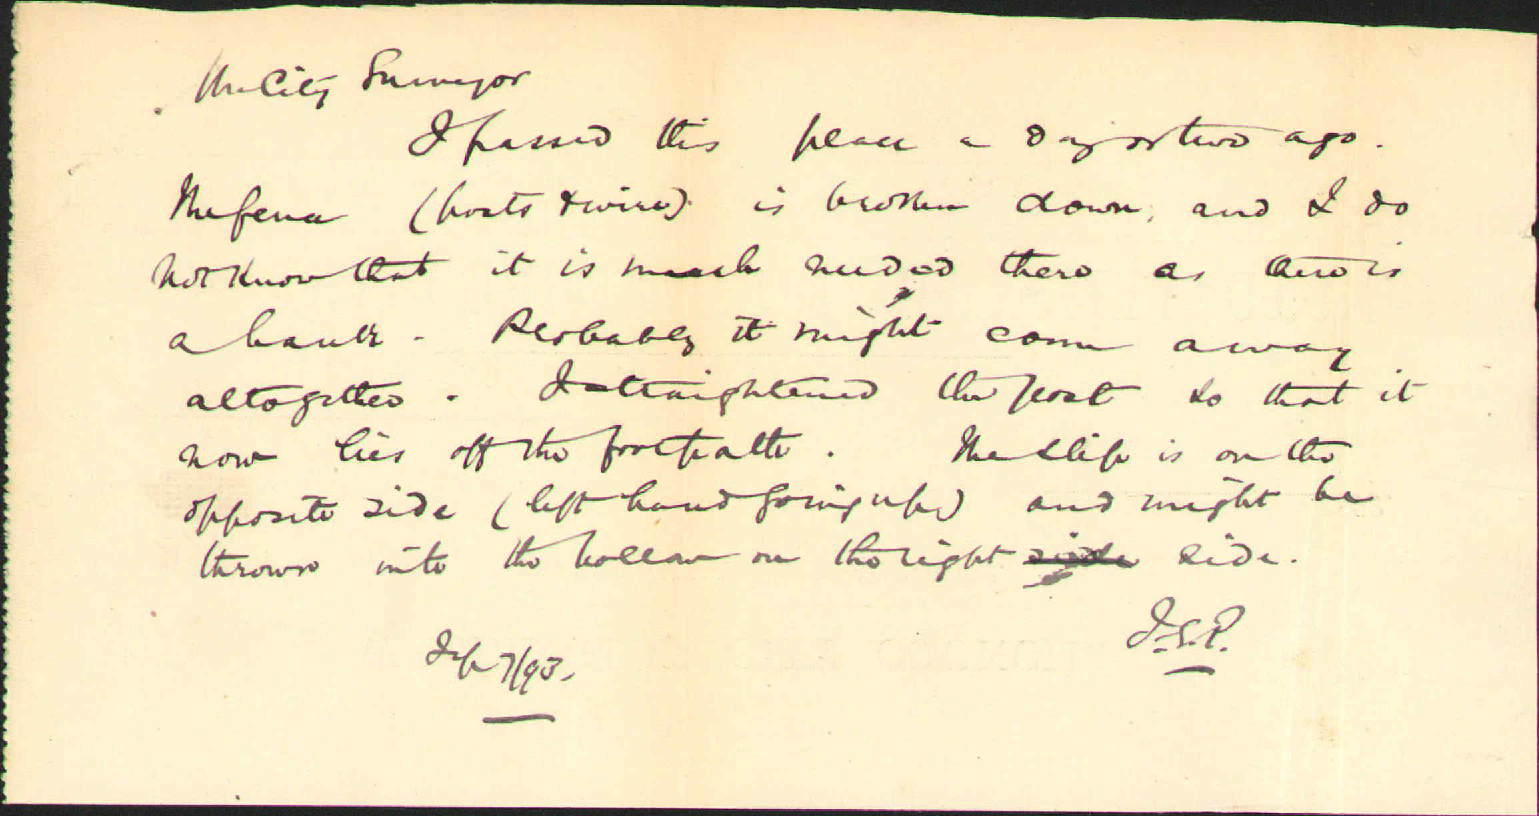 The City Surveyor
I passed this place a day or two ago.
The fence (posts & wire) is broken down, and I do
not know that it is much needed there as there is
a bank. Probably it might come away
altogether. I straightened the post so that it
now lies off the footpath. The slip is on the
opposite side (left hand going up) and might be
thrown into the hollow on the right side side.
J.S.P.
Sep 7/93.